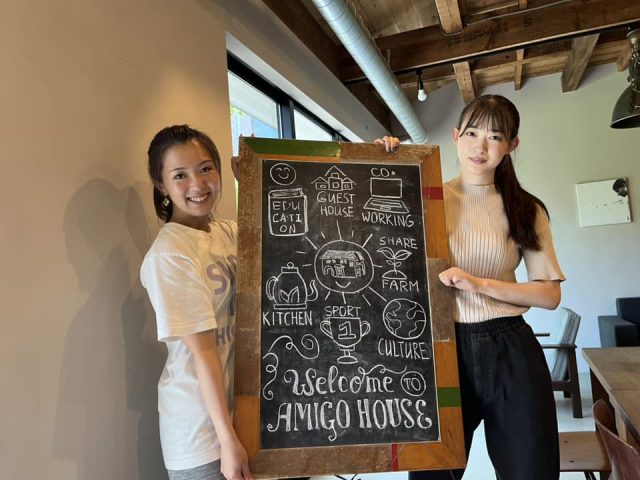 EDU
CATI
ON
GUEST
HOUSE
CO.
WORKING
SHARE
FARM
KITCHEN
SPORT
1
CULTURE
Welcome TO
AMIGO HOUSE